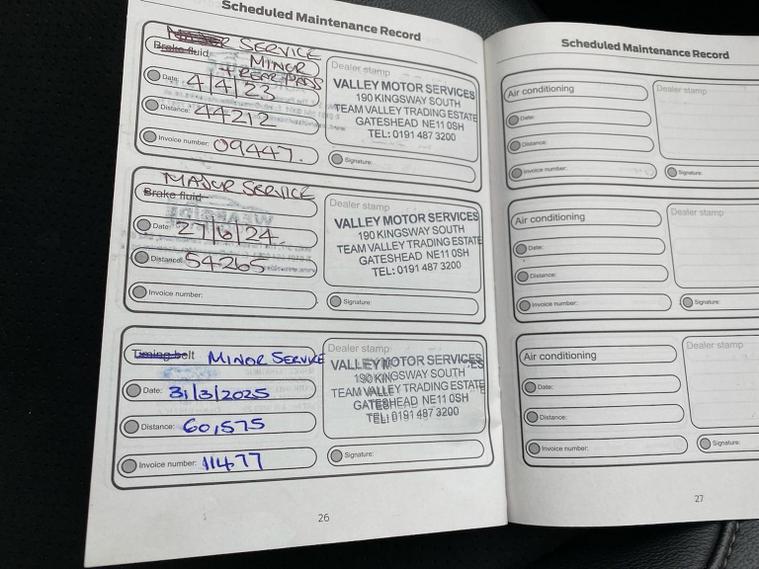 Scheduled Maintenance Record
SERVICE
Brake fluid
MINOR
+ REAR PADS
Date: 4/4/23
Distance: 44212
Invoice number: 09447.
Dealer stamp
VALLEY MOTOR SERVICES
190 KINGSWAY SOUTH
TEAM VALLEY TRADING ESTATE
GATESHEAD NE11 0SH
TEL: 0191 487 3200
Signature:
MAJOR SERVICE
Brake fluid
Date: 27/6/24
Distance: 54265
Invoice number:
Dealer stamp
VALLEY MOTOR SERVICES
190 KINGSWAY SOUTH
TEAM VALLEY TRADING ESTATE
GATESHEAD NE11 0SH
TEL: 0191 487 3200
Signature:
Timing belt MINOR SERVICE
Date: 31/3/2025
Distance: 60,575
Invoice number: 11477
Dealer stamp
VALLEY MOTOR SERVICES
190 KINGSWAY SOUTH
TEAM VALLEY TRADING ESTATE
GATESHEAD NE11 0SH
TEL: 0191 487 3200
Signature:
26
Scheduled Maintenance Record
Air conditioning
Date:
Distance:
Invoice number:
Dealer stamp
Signature:
Air conditioning
Date:
Distance:
Invoice number:
Dealer stamp
Signature:
Air conditioning
Date:
Distance:
Invoice number:
Dealer stamp
Signature:
27